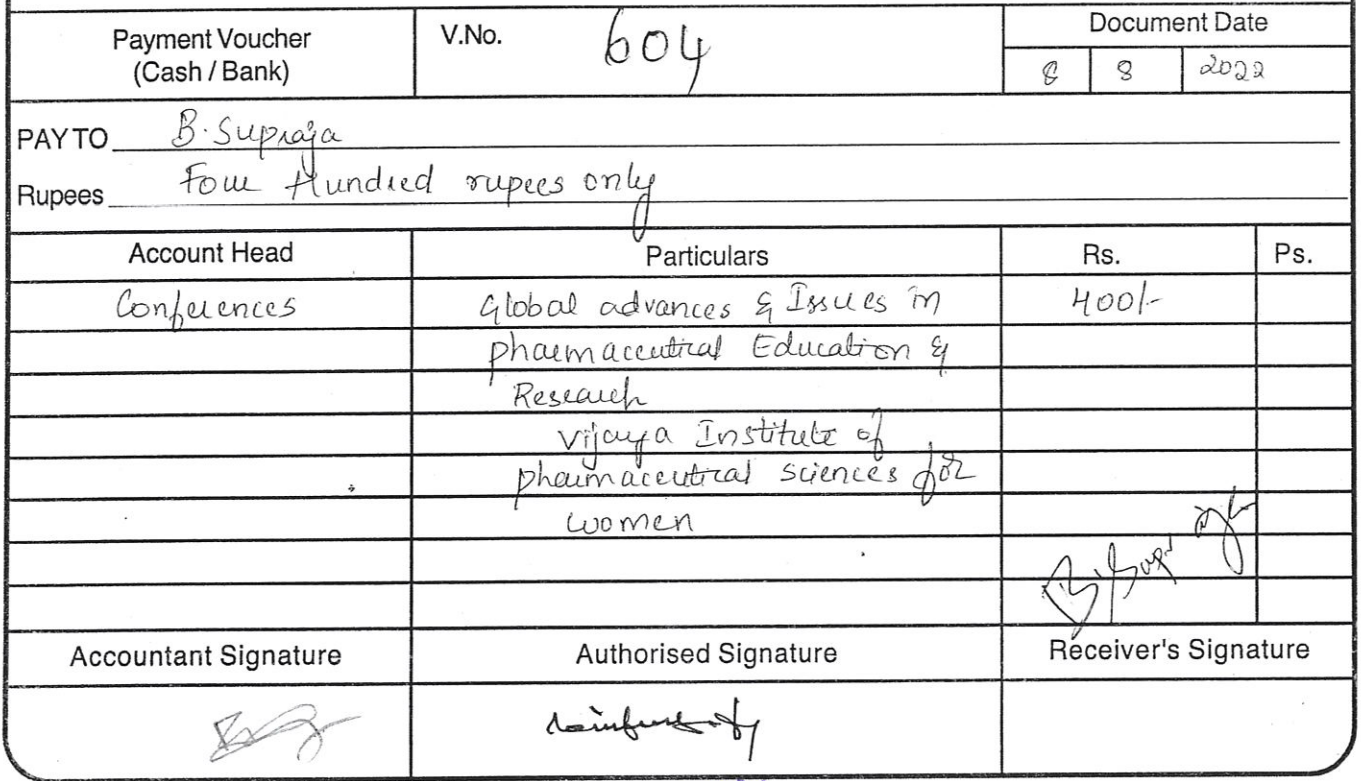 Payment Voucher
(Cash / Bank)
V.No. 604
Document Date
8 8 2022
PAY TO B. Supraja
Rupees Four Hundred rupees only
Account Head Particulars Rs. Ps.
Conferences Global advances & Issues in 400/-
pharmaceutical Education &
Research
Vijaya Institute of
pharmaceutical sciences for
women
B. Supraja
Accountant Signature Authorised Signature Receiver's Signature